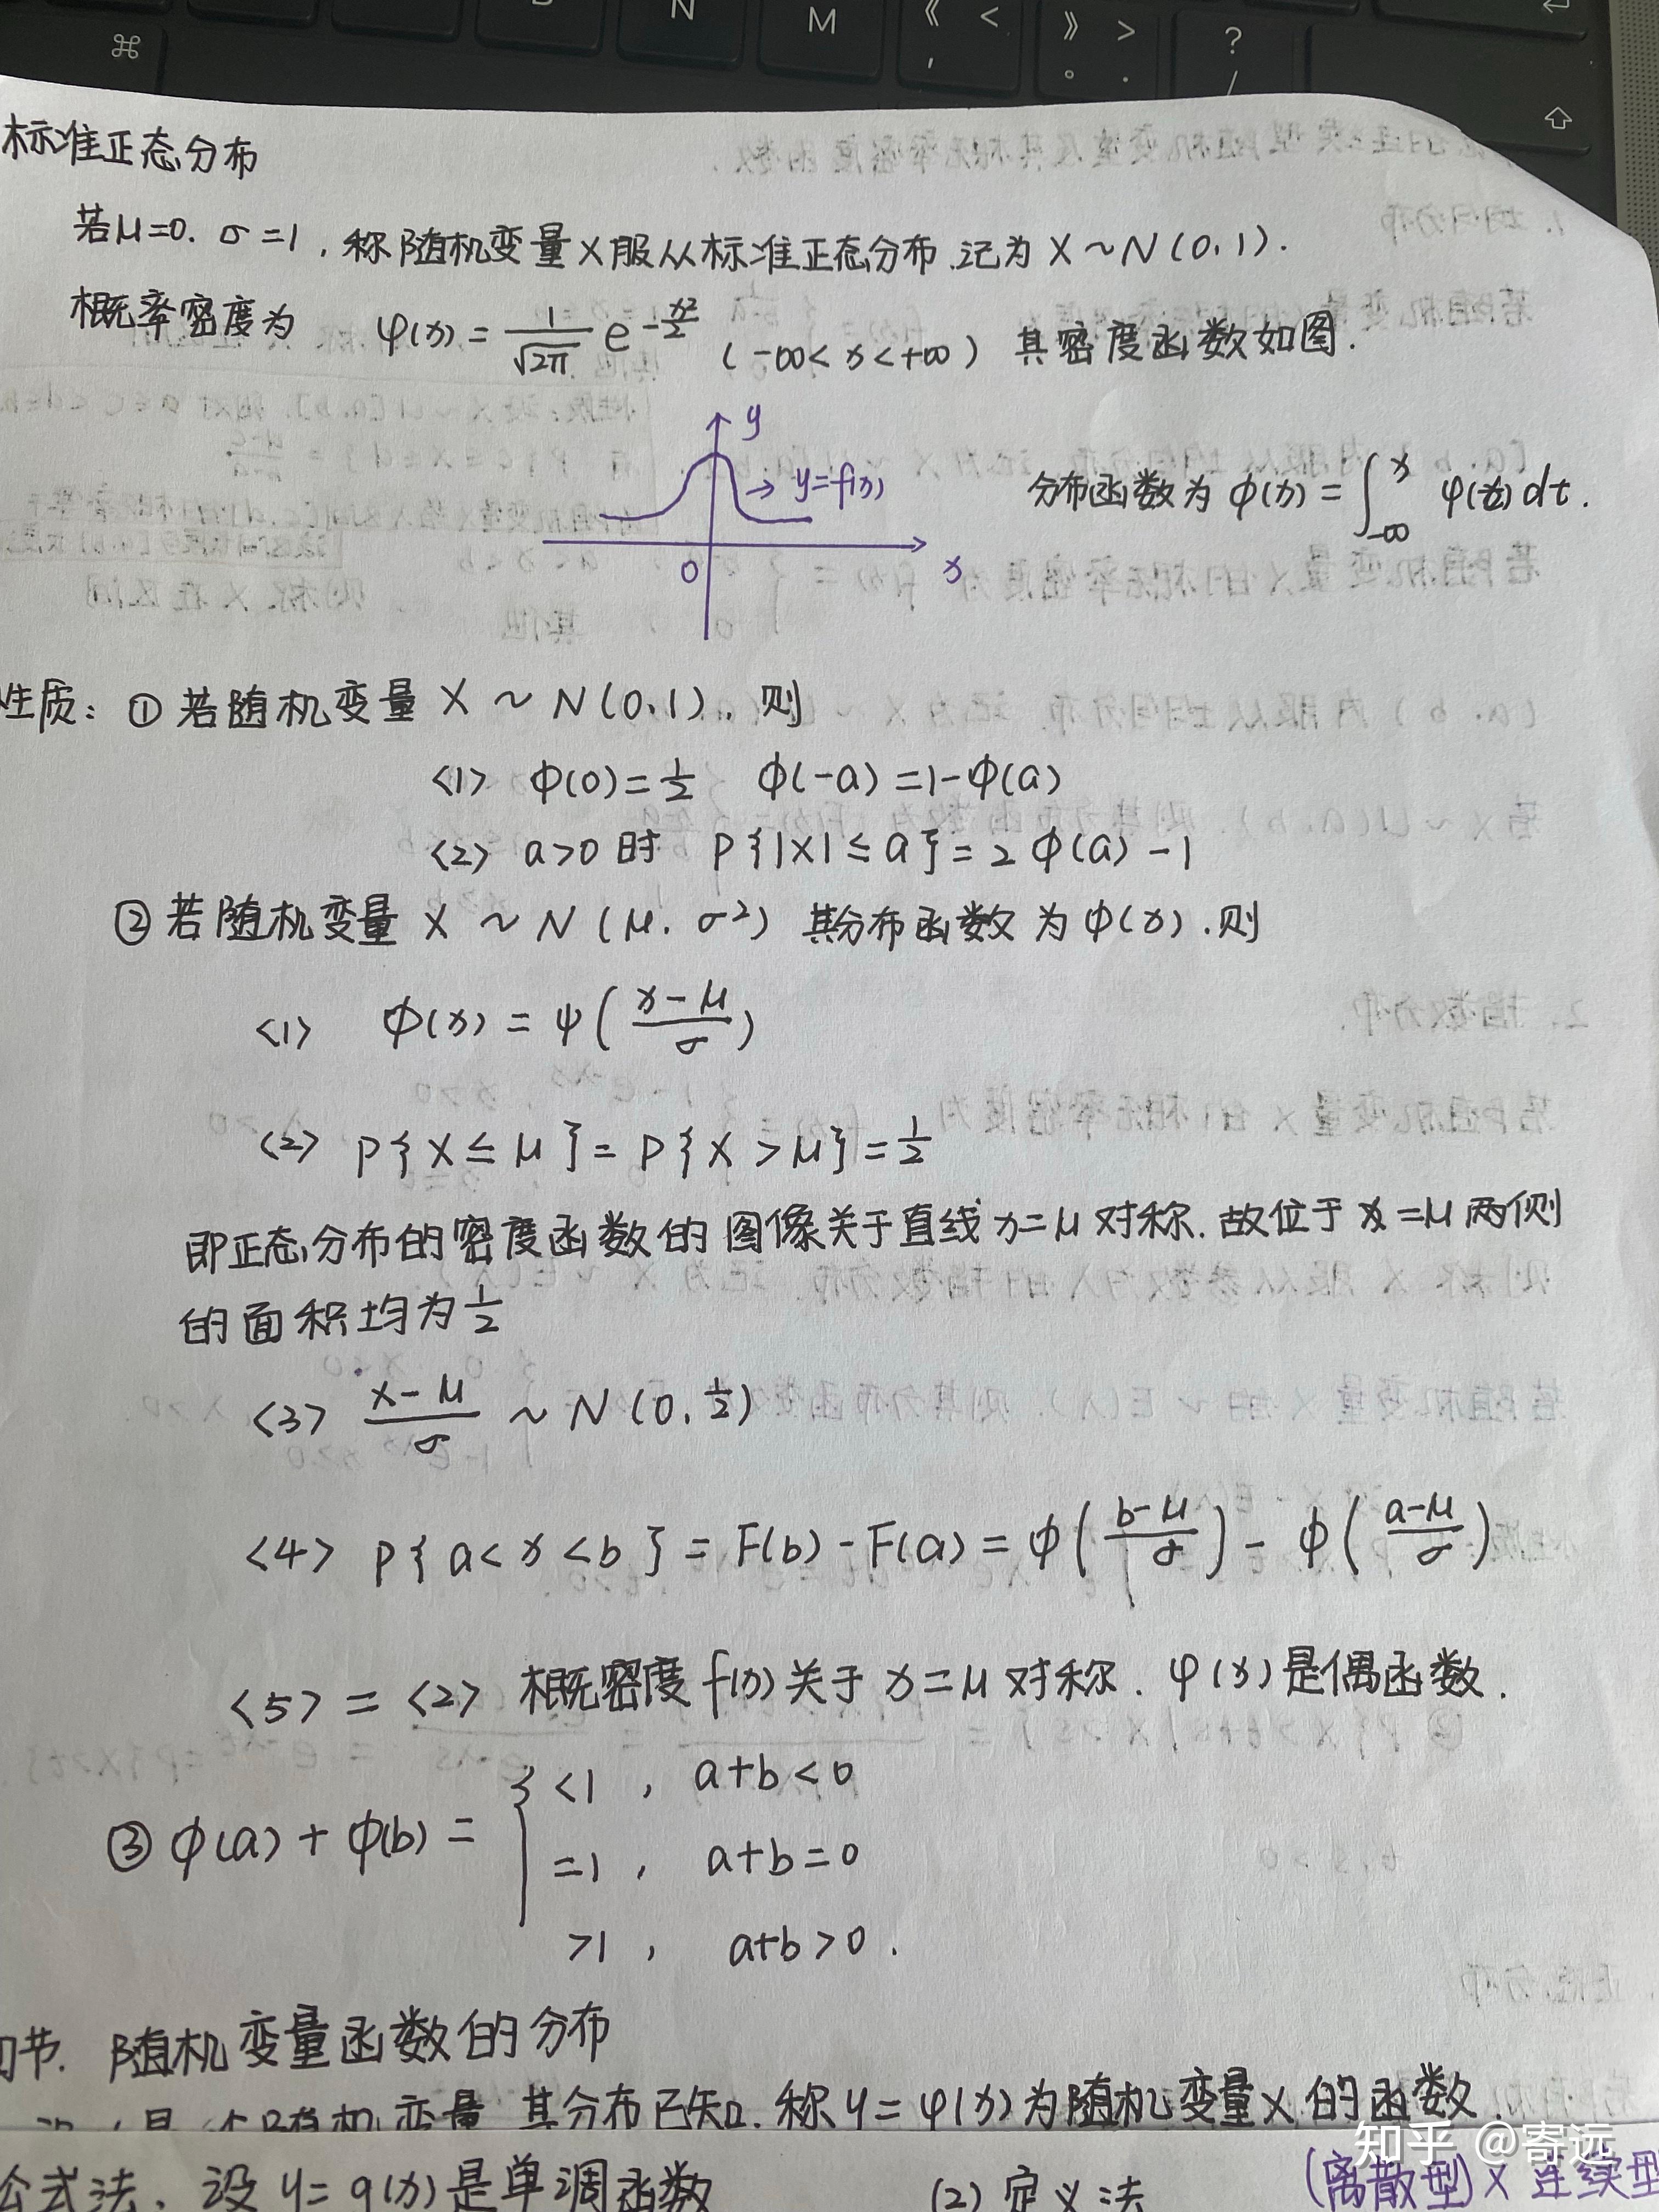 标准正态分布
若μ=0. σ=1,称随机变量X服从标准正态分布.记为 X~N(0,1).
概率密度为 φ(x)=1/√2π e^-x²/2 (-∞<x<+∞) 其密度函数如图.
y
→ y=f(x)
0
x
分布函数为 Φ(x)=∫_-∞^x φ(t)dt.
性质: ① 若随机变量 X ~ N(0,1), 则
<1> Φ(0)=1/2 Φ(-a)=1-Φ(a)
<2> a>0 时 P{|X|≤a}=2Φ(a)-1
② 若随机变量 X ~ N(μ, σ²) 其分布函数为Φ(x).则
<1> Φ(x)=ψ((x-μ)/σ)
<2> P{X≤μ}=P{X>μ}=1/2
即正态分布的密度函数的图像关于直线x=μ对称.故位于x=μ两侧
的面积均为1/2
<3> (x-μ)/σ ~ N(0,1/2)
<4> P{a<x<b}=F(b)-F(a)=Φ((b-μ)/σ)-Φ((a-μ)/σ)
<5> = <2> 概密度f(x)关于x=μ对称. φ(x)是偶函数.
③ Φ(a)+Φ(b)= { <1, a+b<0
=1, a+b=0
>1, a+b>0.
节. 随机变量函数的分布
随机变量 其分布已知. 称y=φ(x)为随机变量X的函数
公式法. 设y=g(x)是单调函数
(2) 定义法
(离散型)X 连续型
知乎 @寄远
⌘
N
M
《 <
,
》 >
。 .
?
/